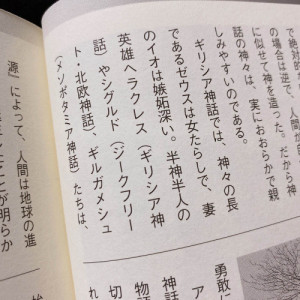 で絶対的
の場合は逆で、人間が
に似せて神を造った。だから神
話の神々は、実におおらかで親
しみやすいのである。
ギリシア神話では、神々の長
であるゼウスは女たらしで、妻
のイオは嫉妬深い。半神半人の
英雄ヘラクレス（ギリシア神
話）やシグルド（ジークフリー
ト・北欧神話）、ギルガメシュ
（メソポタミア神話）たちは、
源』によって、人間は地球の進
ことが明らか
勇敢
ア
神話
物語
切
れ